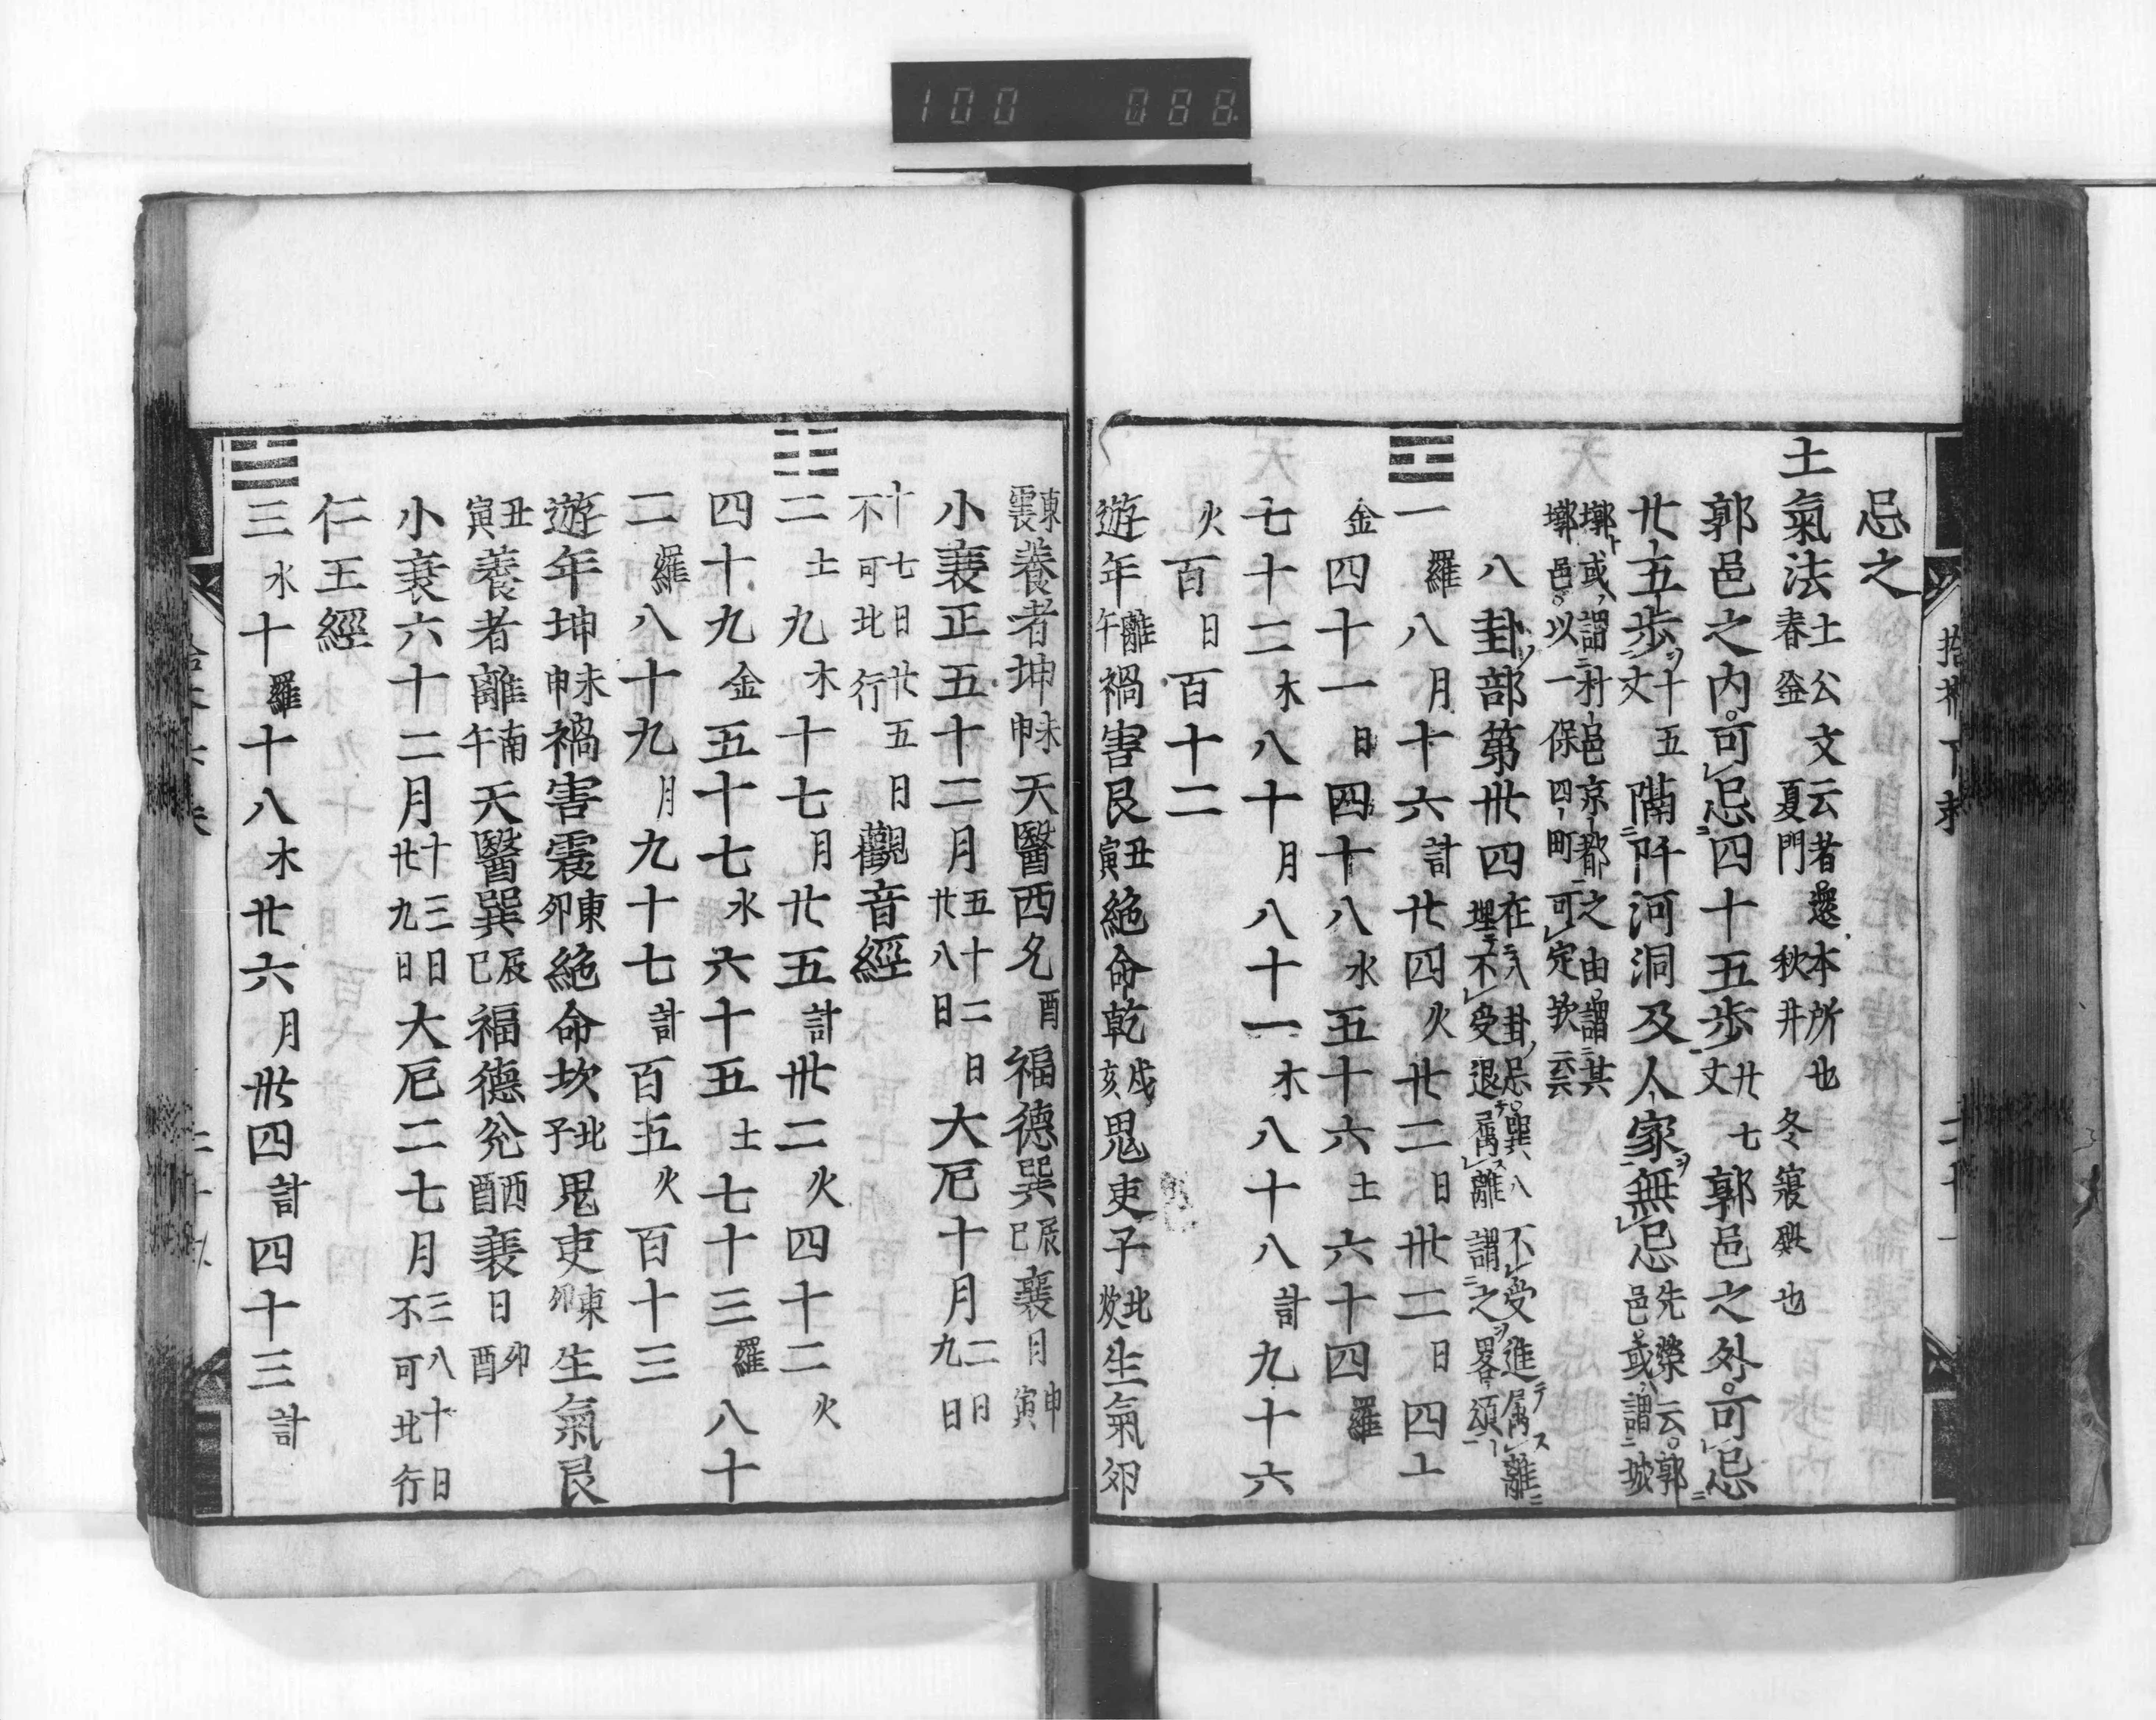 100 088
忌之
土氣法 土公文云者還本所也 春釜 夏門 秋井 冬寢興也
郭邑之内可忌四十五歩 丈廿七 郭邑之外可忌
廿五歩 丈十五 隔阡河洞及人家無忌 先榮云郭邑或謂城
墎或謂村邑京都之由謂其
墎邑以一保四町可定欤云云
八卦部第卅四 在八卦忌巽八不受進属離
埋不受退属離謂之畧頌
☲一 羅 八 月 十六 計 廿四 火 卅二 日 卅二 日 四十
金 四十一 日 四十八 水 五十六 土 六十四 羅
七十二 木 八十 月 八十一 木 八十八 計 九十六
火 百 日 百十二
遊年 離午 禍害艮 丑寅 絶命乾 戌亥 鬼吏子 北坎 生氣卯
東震 養者坤 未申 天醫西 兌酉 福徳巽 辰巳 衰 月 申寅
小衰正五十二月 五十二日廿八日 大厄十月 二日九日
十七日廿五日 不可北行 觀音經
☷二 土 九 木 十七 月 廿五 計 卅二 火 四十二 火
四十九 金 五十七 水 六十五 土 七十三 羅 八十
二 羅 八十九 月 九十七 計 百五 火 百十三
遊年坤 未申 禍害震 東卯 絶命坎 北子 鬼吏 東卯 生氣艮
丑寅 養者離 南午 天醫巽 辰巳 福德兌 西酉 衰日 卯酉
小衰六十二月 十三日廿九日 大厄二七月 三八十日不可北行
仁王經
☴三 水 十 羅 十八 木 廿六 月 卅四 計 四十三 計